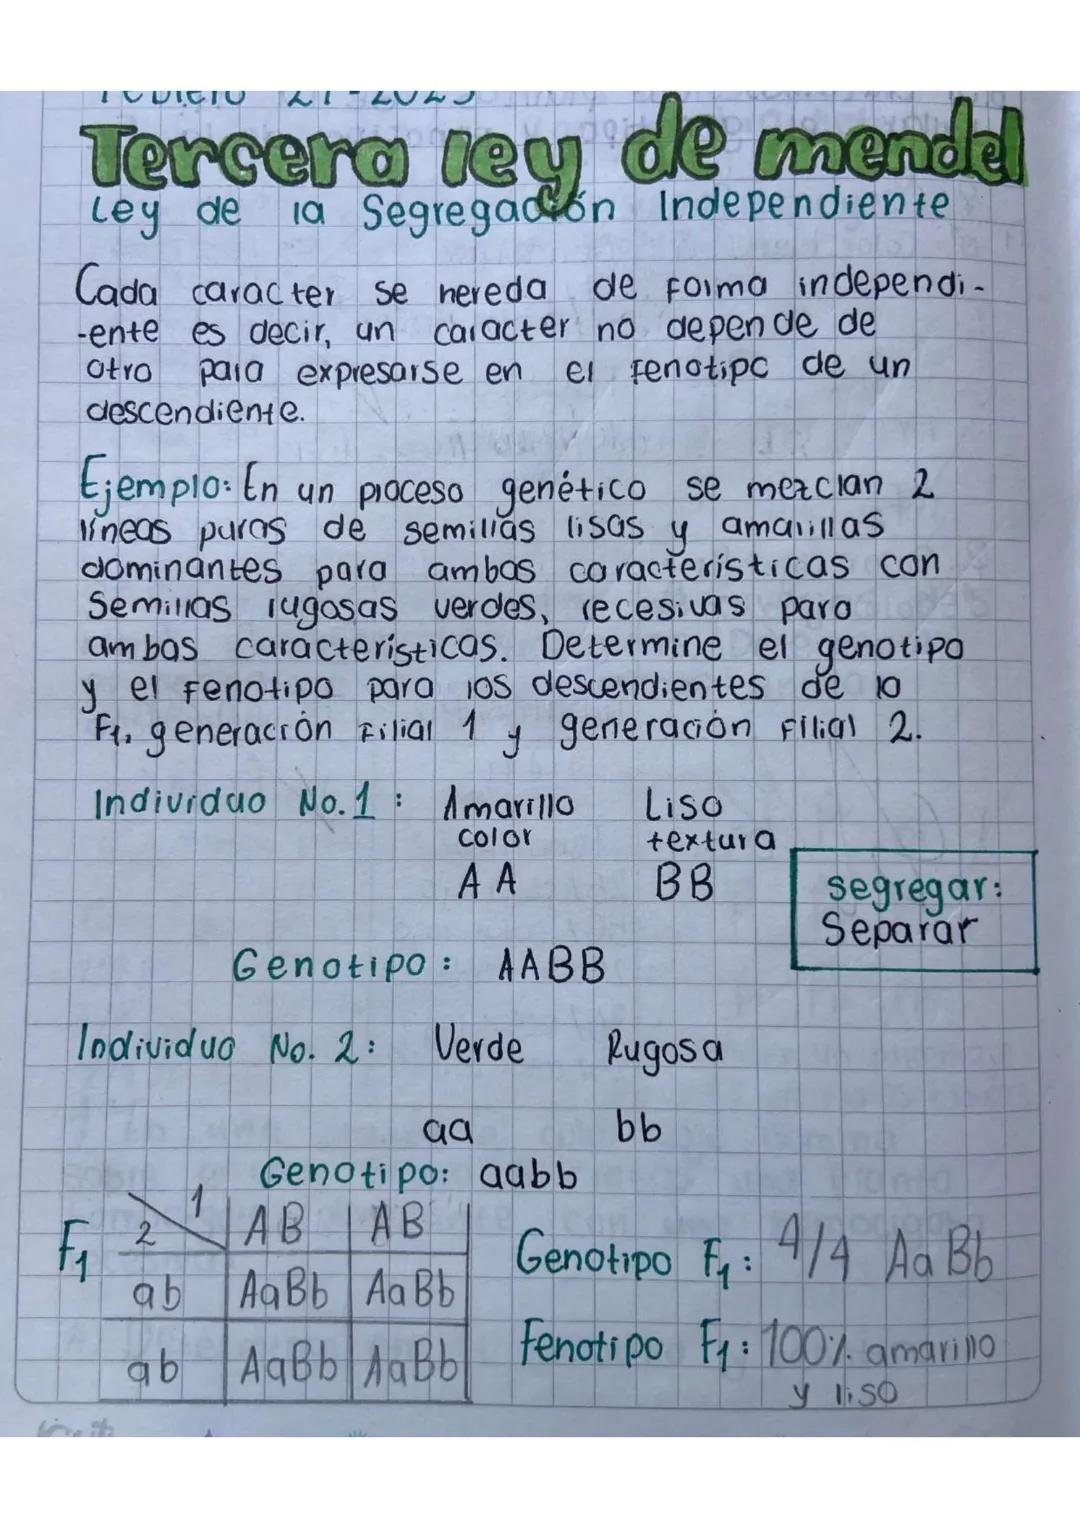 Febrero 21-2023
Tercera ley de mendel
Ley de la Segregación Independiente
Cada caracter se hereda de forma independi-
-ente es decir, un caracter no depende de
otro para expresarse en el fenotipo de un
descendiente.
Ejemplo: En un proceso genético se mezclan 2
líneas puras de semillas lisas y amarillas
dominantes para ambas características con
Semillas rugosas verdes, recesivas para
ambas características. Determine el genotipo
y el fenotipo para los descendientes de la
F1, generación Filial 1 y generación filial 2.
Individuo No. 1 : Amarillo Liso
color textura
AA BB
segregar:
Separar
Genotipo : AABB
Individuo No. 2 : Verde Rugosa
aa bb
Genotipo: aabb
F1 2 1 AB AB
ab AaBb AaBb
ab AaBb AaBb
Genotipo F1 : 4/4 AaBb
Fenotipo F1 : 100% amarillo
y liso